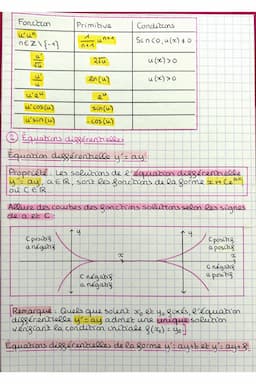 Fonction Primitive Conditions
u'uⁿ
n∈ℤ\{-1} 1/(n+1) uⁿ⁺¹ Si n<0, u(x)≠0
u'/√u 2√u u(x)>0
u'/u ln(u) u(x)>0
u'eᵘ eᵘ
u'cos(u) sin(u)
u'sin(u) -cos(u)
② Équations différentielles
Équation différentielle y'=ay
Propriété : Les solutions de l'équation différentielle
y'=ay, a∈ℝ, sont les fonctions de la forme x↦Ceᵃˣ
où C∈ℝ.
Allure des courbes des fonctions solutions selon les signes
de a et C :
C positif
a négatif
y
y
C positif
a positif
x
x
C négatif
a négatif
C négatif
a positif
Remarque : Quels que soient x₀ et y₀ fixés, l'équation
différentielle y'=ay admet une unique solution
vérifiant la condition initiale f(x₀)=y₀.
Équations différentielles de la forme y'=ay+b et y'=ay+f